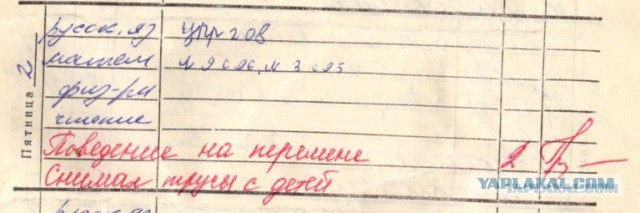 Пятница 2
русск. яз
матем N 9 с 96, N 3 с 95
физ-ра
чтение
Поведение на перемене 2
Снимал трусы с детей
YAPLAKAL.COM
русск. яз